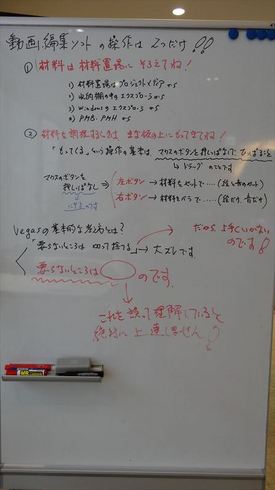 動画編集ソフトの操作は2つだけ!!
① 材料は材料置場にそろえてね!
1) 材料置場はプロジェクトメディアから
3) Windowsのエクスプローラから
② 材料を調理するには まな板の上にもってきてね!
「もってくる」という操作の基本は、マウスのボタンを押しっぱなしで
ドラッグのことです
マウスのボタンを
押しっぱなし
左ボタン→材料をセットで・・・・
右ボタン→材料をバラで・・・・
Vegasの基本的な考え方とは?
だから、上手くいかない
のです!
「要らないところは 切って捨てる」→大ズレです
要らないところは のです。
これを誤って理解していると
絶対に上達しません!